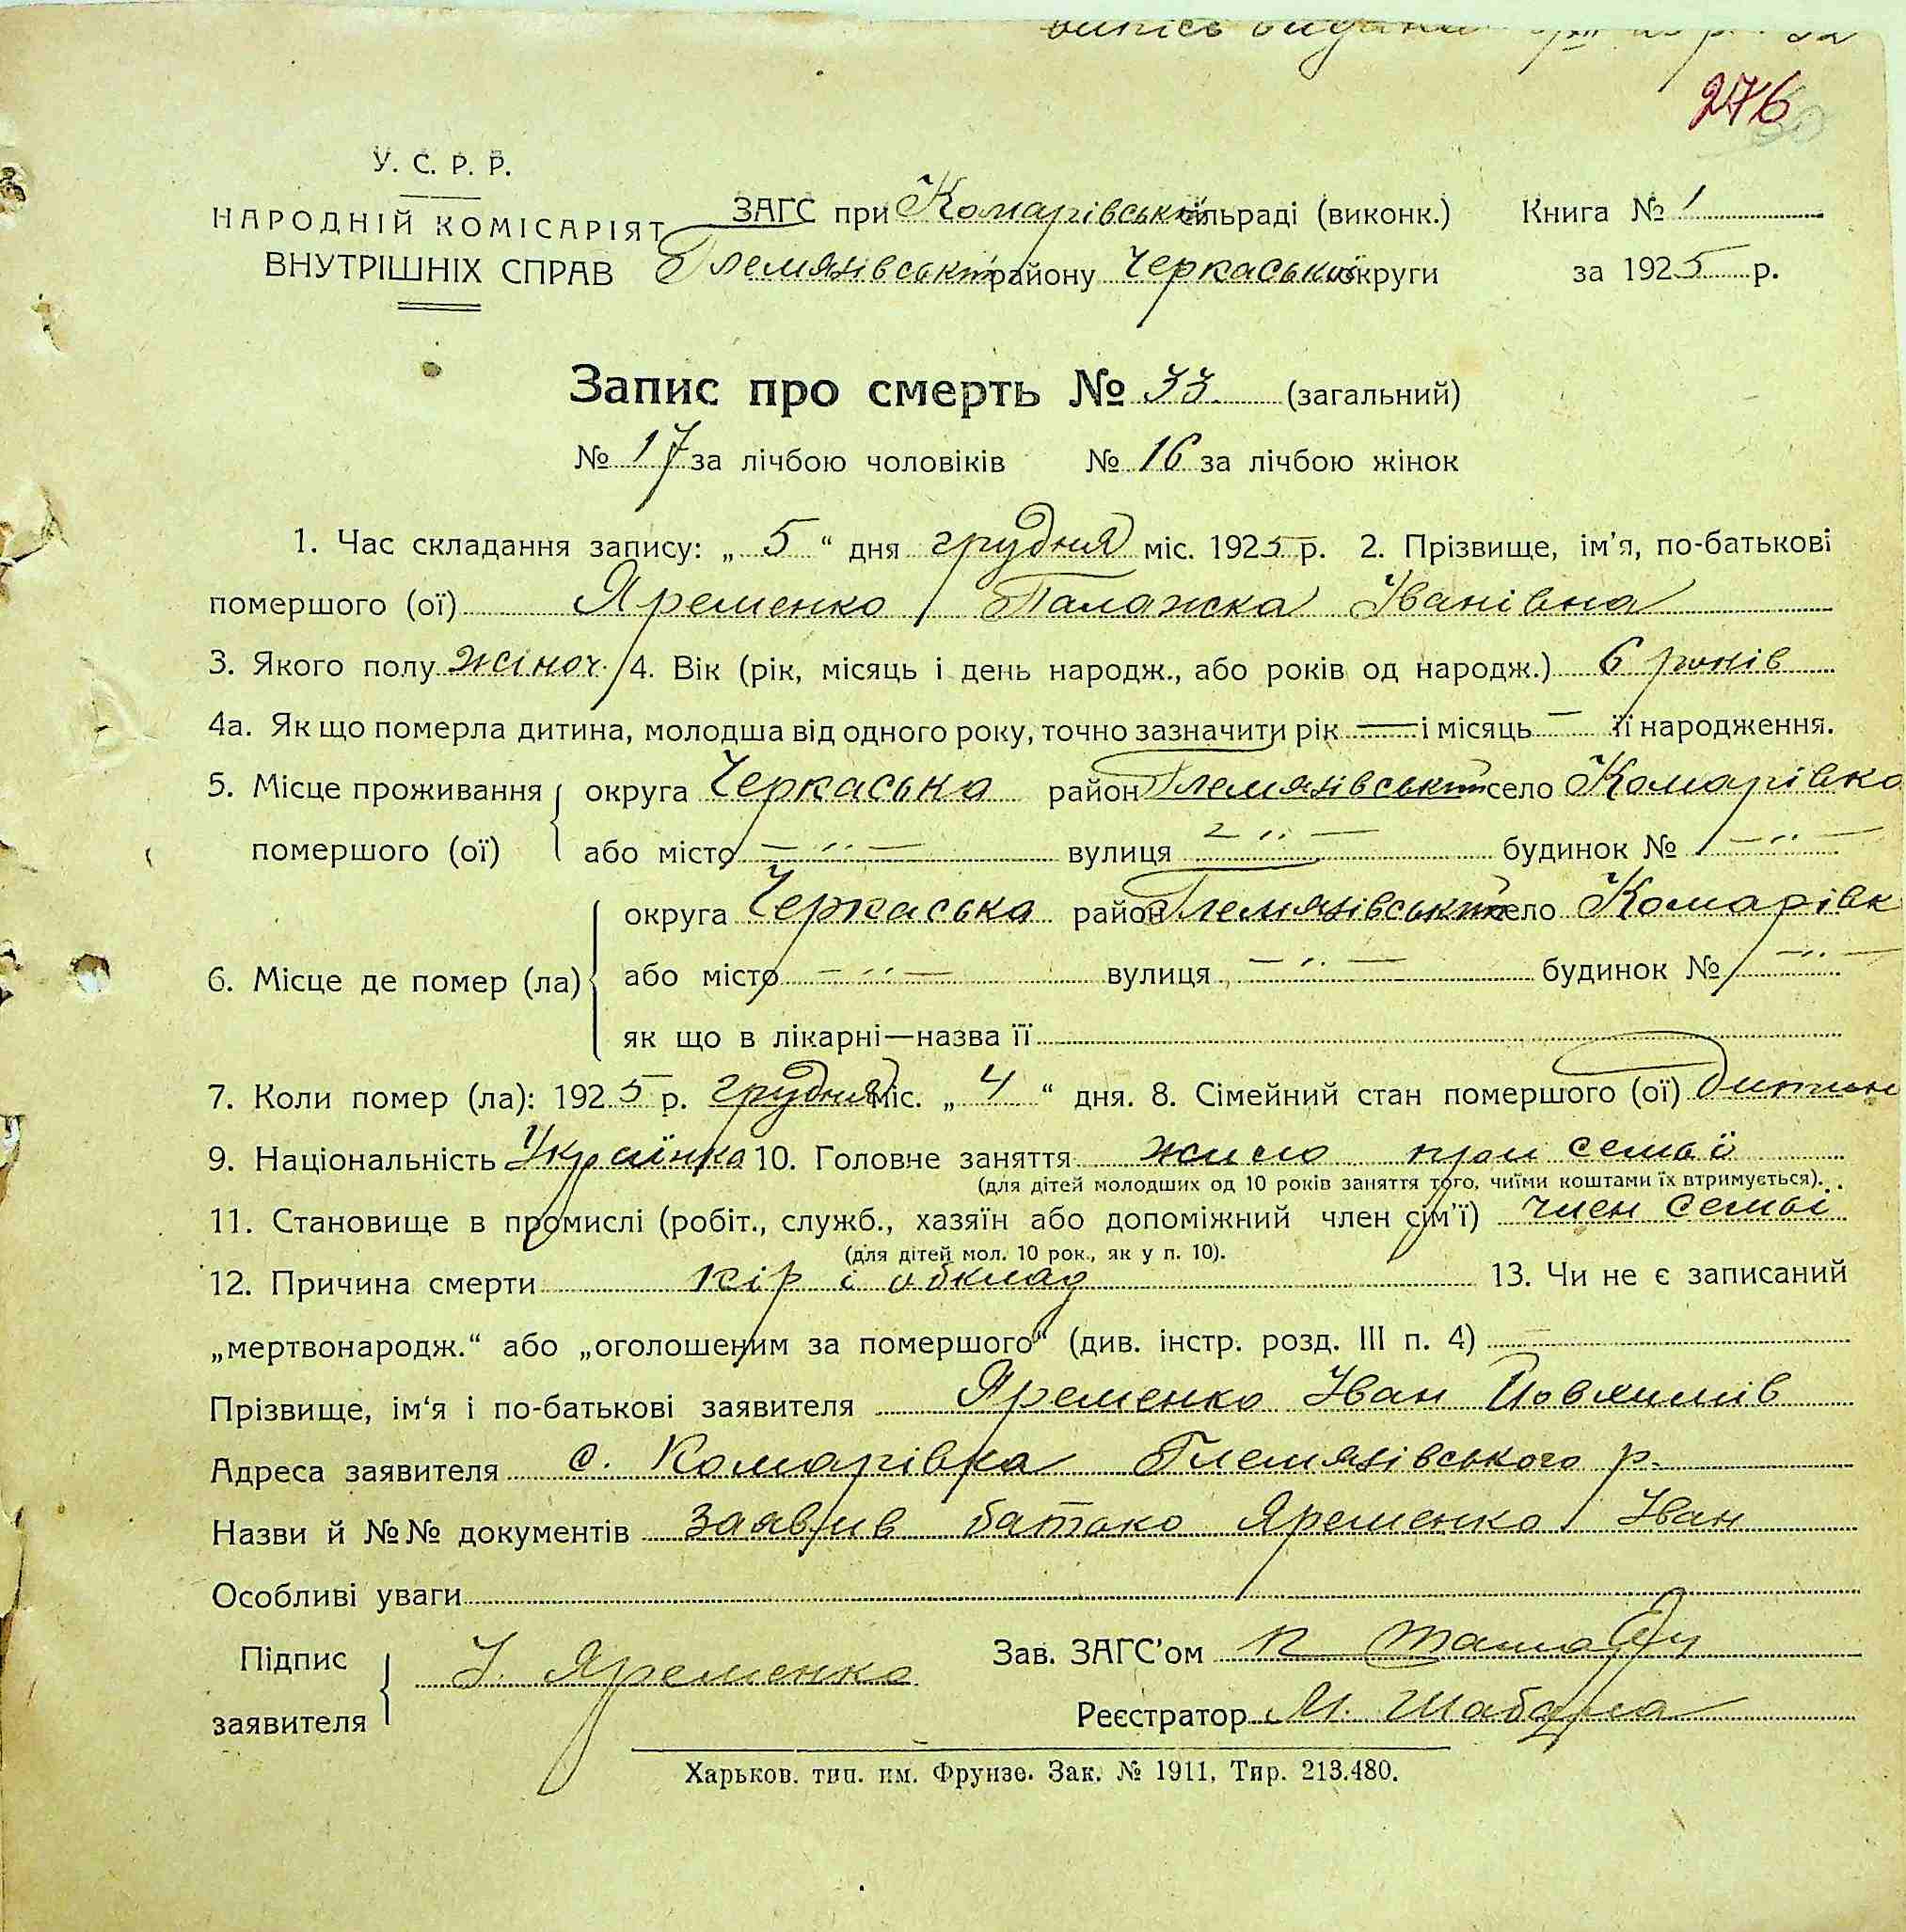 випісь видана
276
У. С. Р. Р.
НАРОДНІЙ КОМІСАРІЯТ
ВНУТРІШНІХ СПРАВ
ЗАГС при Комарівській сільраді (виконк.)
Гельмязівський району Черкаської округи
Книга № 1
за 1925 р.
Запис про смерть № 33. (загальний)
№ 17 за лічбою чоловіків № 16 за лічбою жінок
1. Час складання запису: „ 5 “ дня грудня міс. 1925 р. 2. Прізвище, ім'я, по-батькові
помершого (ої) Яременко Палажка Іванівна
3. Якого полу жіноч. 4. Вік (рік, місяць і день народж., або років од народж.) 6 років
4а. Як що померла дитина, молодша від одного року, точно зазначити рік — і місяць — її народження.
5. Місце проживання помершого (ої) округа Черкаська район Глемязівський село Комарівка
або місто — „ — вулиця — „ — будинок № — „ —
6. Місце де помер (ла) округа Черкаська район Глемязівський село Комарівк
або місто — „ — вулиця — „ — будинок № — „ —
як що в лікарні—назва її
7. Коли помер (ла): 1925 р. грудня міс. „ 4 “ дня. 8. Сімейний стан помершого (ої) дитин
9. Національність Українка 10. Головне заняття жило при семьї
(для дітей молодших од 10 років заняття того, чиїми коштами їх втримується).
11. Становище в промислі (робіт., служб., хазяїн або допоміжний член сім'ї) член семьі
(для дітей мол. 10 рок., як у п. 10).
12. Причина смерти кір і обклад 13. Чи не є записаний
„мертвонародж.“ або „оголошеним за помершого“ (див. інстр. розд. III п. 4) —
Прізвище, ім'я і по-батькові заявителя Яременко Іван Йовхимів
Адреса заявителя с. Комарівка Глемязівського р.
Назви й №№ документів заявив батько Яременко Іван
Особливі уваги
Підпис заявителя І. Яременко
Зав. ЗАГС'ом
Реєстратор М. Шабдра
Харьков. тип. им. Фрунзе. Зак. № 1911, Тир. 213.480.